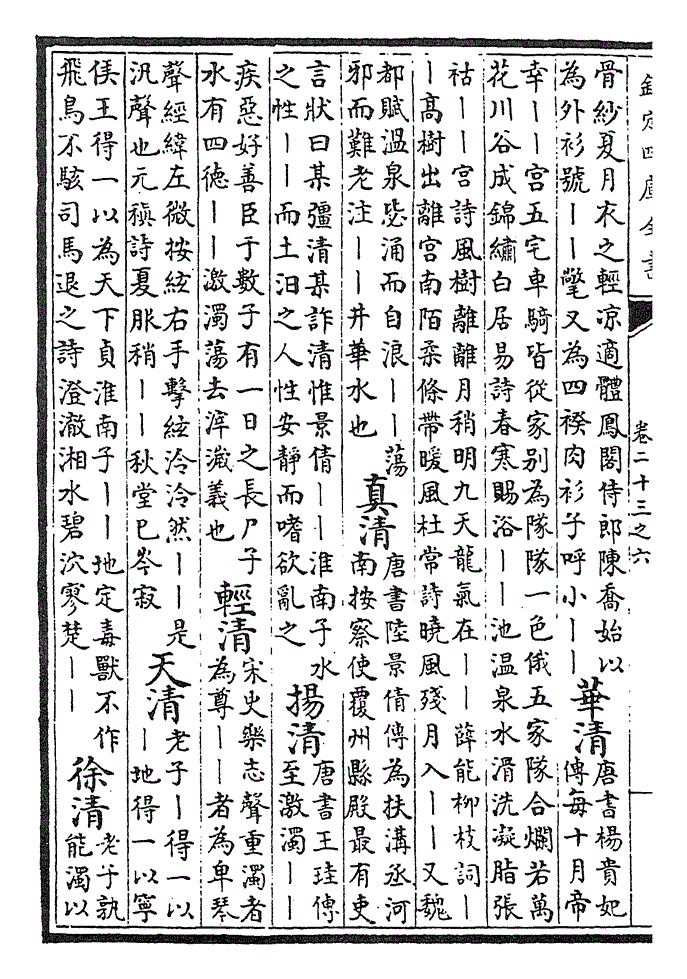 欽定四庫全書
卷二十三之六
骨紗夏月衣之輕凉適體鳳閣侍郎陳喬始以
為外衫號——氅又為四䙆肉衫子呼小——
華清
唐書楊貴妃
傳每十月帝
幸——宫五宅車騎皆從家别為隊隊一色俄五家隊合爛若萬
花川谷成錦繡白居易詩春寒賜浴——池温泉水滑洗凝脂張
祜——宫詩風樹離離月稍明九天龍氣在——薛能柳枝詞—
—髙樹出離宫南陌柔條帶暖風杜常詩曉風殘月入——又魏
都賦温泉毖涌而自浪——蕩
邪而難老注——井華水也
真清
唐書陸景倩傳為扶溝丞河
南按察使覆州縣殿最有吏
言狀曰某彊清某詐清惟景倩——淮南子水
之性——而土汨之人性安静而嗜欲亂之
揚清
唐書王珪傳
至激濁——
疾惡好善臣于數子有一日之長尸子
水有四徳——激濁蕩去滓濊義也
輕清
宋史樂志聲重濁者
為尊——者為卑琴
聲經緯左微按絃右手擊絃泠泠然——是
汎聲也元稹詩夏服稍——秋堂已岑寂
天清
老子—得一以
—地得一以寧
侯王得一以為天下貞淮南子——地定毒獸不作
飛鳥不駭司馬退之詩澄澈湘水碧泬寥楚——
徐清
老子孰
能濁以